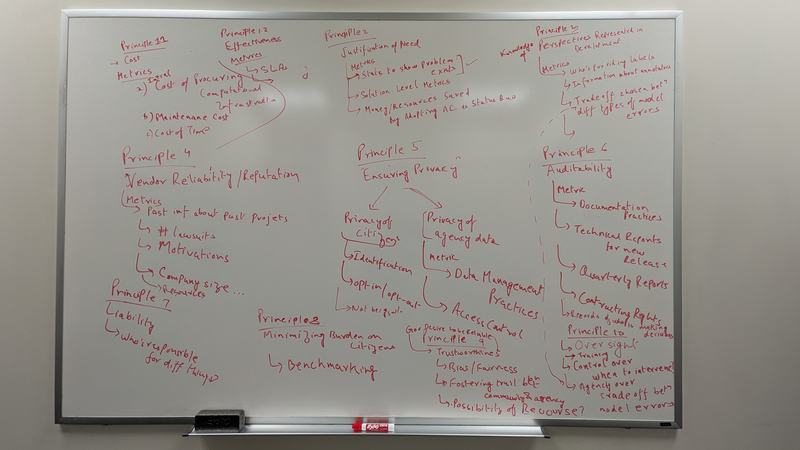 Principle 1.1
→ Cost
Metrics
Initial
a) Cost of Procuring
Computational
Infrastructure
b) Maintenance Cost
c) Cost of Time
Principle 1.2
Effectiveness
Metrics
↳ SLAs
Principle 2
Justification of Need
Metrics
→ Stats to show problem
exists
→ Solution Level Metrics
→ Money/Resources Saved
by Adopting AI to Status Quo
Principle 3
Knowledge of Perspectives Represented in
Development
Metrics
→ Who's providing labels
→ Information about annotators
→ Tradeoff chosen betn
diff types of model
errors
Principle 4
Vendor Reliability/Reputation
Metrics
→ Past inf about Past Projets
↳ # lawsuits
↳ Motivations
↳ Company size...
↳ Resources
Principle 5
Ensuring Privacy
Privacy of
Citizens
↳ Identification
↳ opt-in/opt-out
Privacy of
agency data
Metric
↳ Data Management
Practices
↳ Access Control
Principle 6
Auditability
Metric
→ Documentation
Practices
→ Technical Reports
for new
Release
→ Quarterly Reports
→ Contracting Rights
↳ Records of who's making
decisions
Principle 7
Liability
↳ Who's responsible
for diff things
Principle 8
Minimizing Burden on
Citizens
↳ Benchmarking
Principle 9
↳ Trustworthiness
↳ Bias/Fairness
↳ Fostering trust betn
community & agency
↳ Possibility of Recourse?
Principle 10
Oversight
↳ Training
↳ Control over
when to intervene
↳ Agency over
tradeoff betn
model errors
EXPO